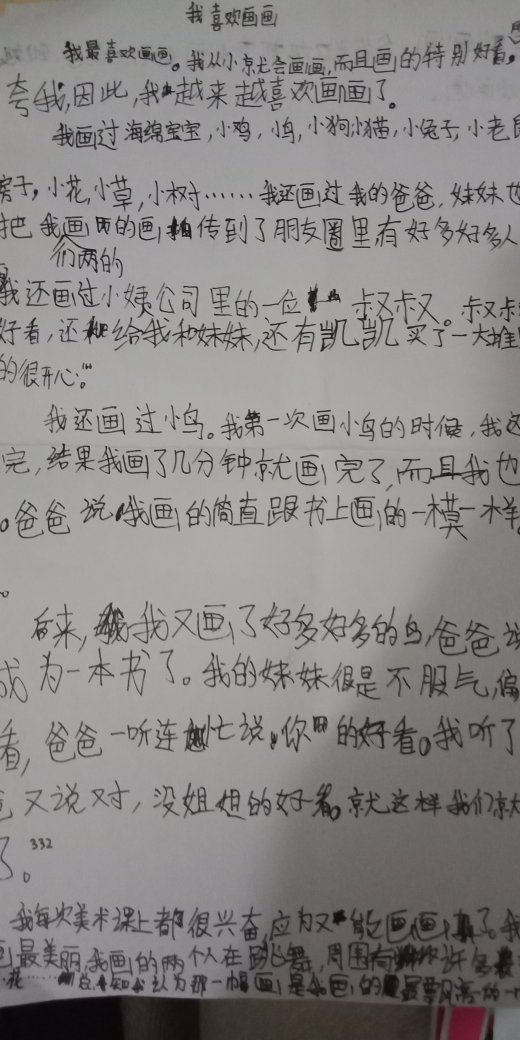 我喜欢画画
我最喜欢画画。我从小就会画画,而且画的特别好看。
夸我,因此,我越来越喜欢画画了。
我画过海绵宝宝,小鸡,小鸟,小狗小猫,小兔子,小老
房子,小花,小草,小树……我还画过我的爸爸,妹妹也
把我画的画传到了朋友圈里,有好多好多人
们两的
我还画过小姨公司里的一位叔叔。叔叔
好看,还给我和妹妹,还有凯凯买了一大堆
的很开心。
我还画过小鸟。我第一次画小鸟的时候,我还
完,结果我画了几分钟就画完了,而且我也
。爸爸说,我画的简直跟书上画的一模一样
。
后来,我又画了好多好多的鸟,爸爸说
成为一本书了。我的妹妹很是不服气,偏
看,爸爸一听连忙说,你的好看。我听了
又说对,没姐姐的好看。就这样我们就
了。332
我每次美术课上都很兴奋,应为又能画画了。我
最美丽,我画的两个人在跳舞,周围有许多
花……认为那一幅画是我画的最